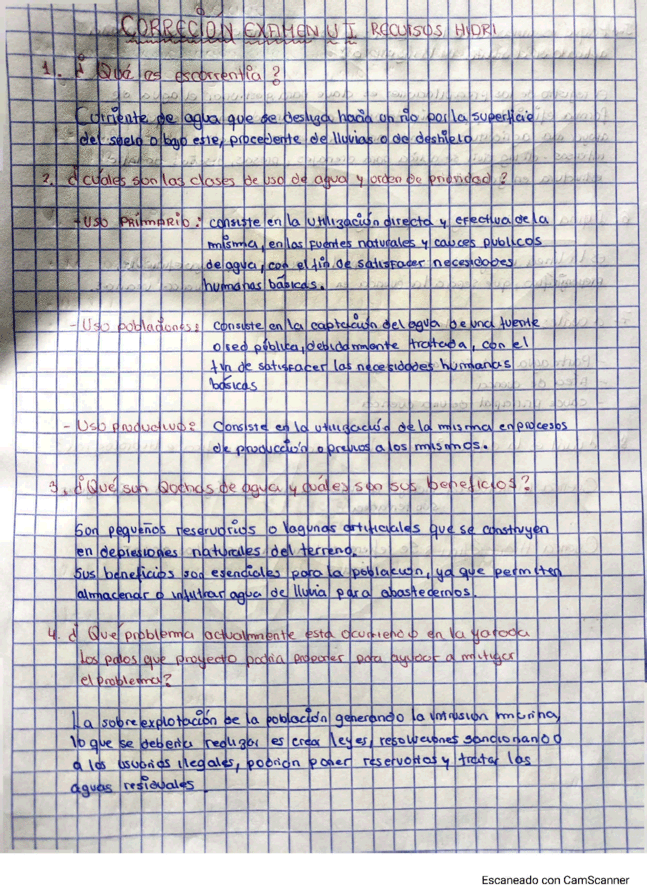 CORRECIÓN EXAMEN U I RECURSOS HIDRI
1. ¿Qué es escorrentía?
Corriente de agua que se desliza hacia un río por la superficie
del suelo o bajo este, procedente de lluvias o de deshielo
2. ¿cuáles son las clases de uso de agua y orden de prioridad?
-USO PRIMARIO: consiste en la utilización directa y efectiva de la
misma, en las fuentes naturales y cauces publicos
de agua, con el fin de satisfacer necesidades
humanas básicas.
- Uso poblaciones: consiste en la captación del agua de una fuente
o red pública, debidamente tratada, con el
fin de satisfacer las necesidades humanas
básicas
- Uso productivo: Consiste en la utilización de la misma en procesos
de producción o previos a los mismos.
3. ¿Qué son Qochas de agua y cuáles son sus beneficios?
Son pequeños reservorios o lagunas artificiales que se construyen
en depresiones naturales del terreno.
Sus beneficios son esenciales para la población, ya que permiten
almacenar o infiltrar agua de lluvia para abastecernos.
4. ¿Qué problema actualmente esta ocurriendo en la yarada
los palos que proyecto podria proponer para ayudar a mitigar
el problema?
La sobreexplotación de la población generando la intrusion marina,
lo que se deberia realizar es crear leyes, resoluciones sancionando
a los usuarios ilegales, podrian poner reservorios y tratar las
aguas residuales
Escaneado con CamScanner